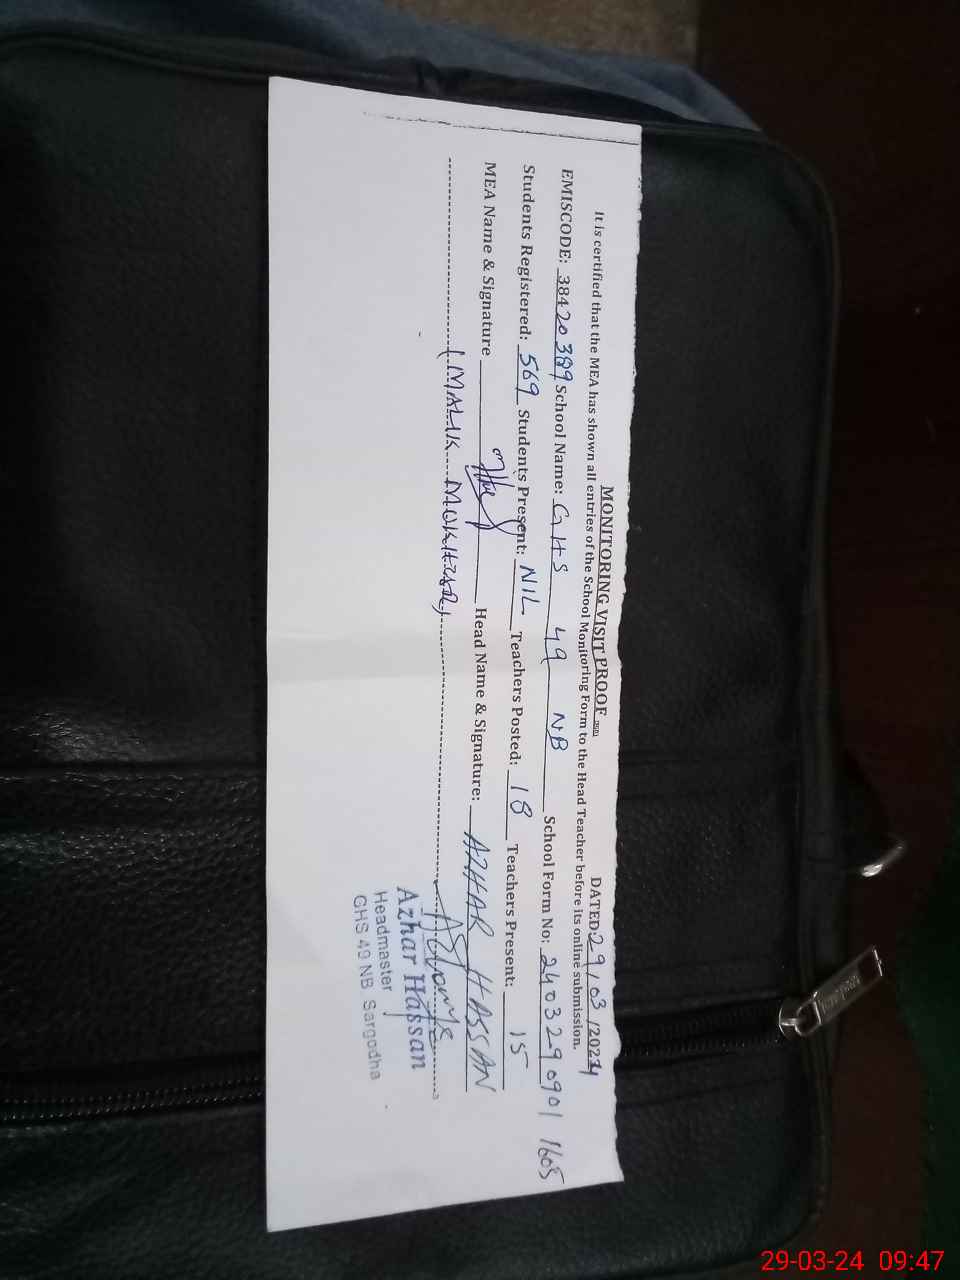 MONITORING VISIT PROOF
DATED: 29/03/2024
It is certified that the MEA has shown all entries of the School Monitoring Form to the Head Teacher before its online submission.
EMISCODE: 38420389 School Name: GHS 49 NB School Form No: 2403290901 1605
Students Registered: 569 Students Present: NIL Teachers Posted: 18 Teachers Present: 15
MEA Name & Signature Head Name & Signature: AZHAR HASSAN
(MALIK MUKHTAR)
Azhar Hassan
Headmaster
GHS 49 NB Sargodha
29-03-24 09:47